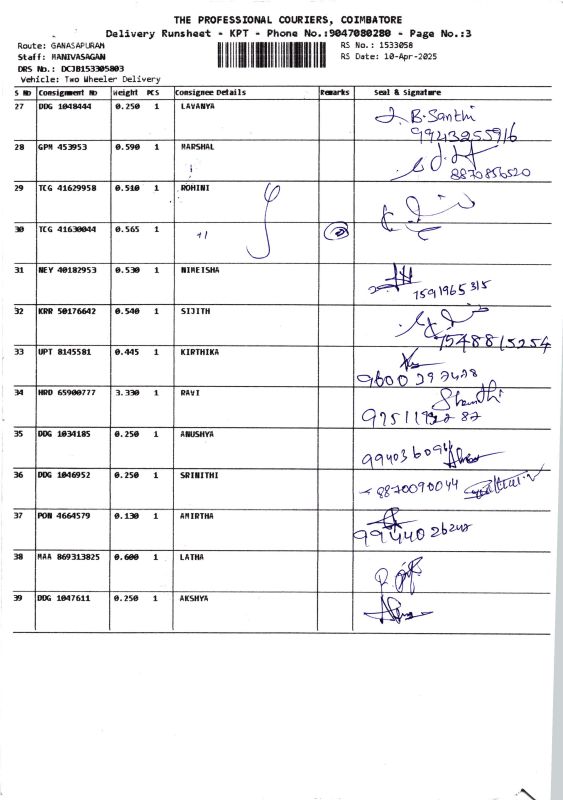 THE PROFESSIONAL COURIERS, COIMBATORE
Delivery Runsheet - KPT - Phone No.:9047080280 - Page No.:3
Route: GANASAPURAM RS No.: 1533058
Staff: MANIVASAGAN RS Date: 10-Apr-2025
DRS No.: DCJB153305803
Vehicle: Two Wheeler Delivery
S No Consignment No Weight PCS Consignee Details Remarks Seal & Signature
27 DDG 1048444 0.250 1 LAVANYA
B. Santhi
9943255916
28 GPM 453953 0.590 1 MARSHAL
8870856520
29 TCG 41629958 0.510 1 ROHINI
30 TCG 41630044 0.565 1
31 NEY 40182953 0.530 1 NIMEISHA
7591965315
32 KRR 50176642 0.540 1 SIJITH
7548815254
33 UPT 8145581 0.445 1 KIRTHIKA
34 HRD 65900777 3.330 1 RAVI
35 DDG 1034185 0.250 1 ANUSHYA
36 DDG 1046952 0.250 1 SRINITHI
8870090044
37 PON 4664579 0.130 1 AMIRTHA
38 MAA 869313825 0.600 1 LATHA
39 DDG 1047611 0.250 1 AKSHYA